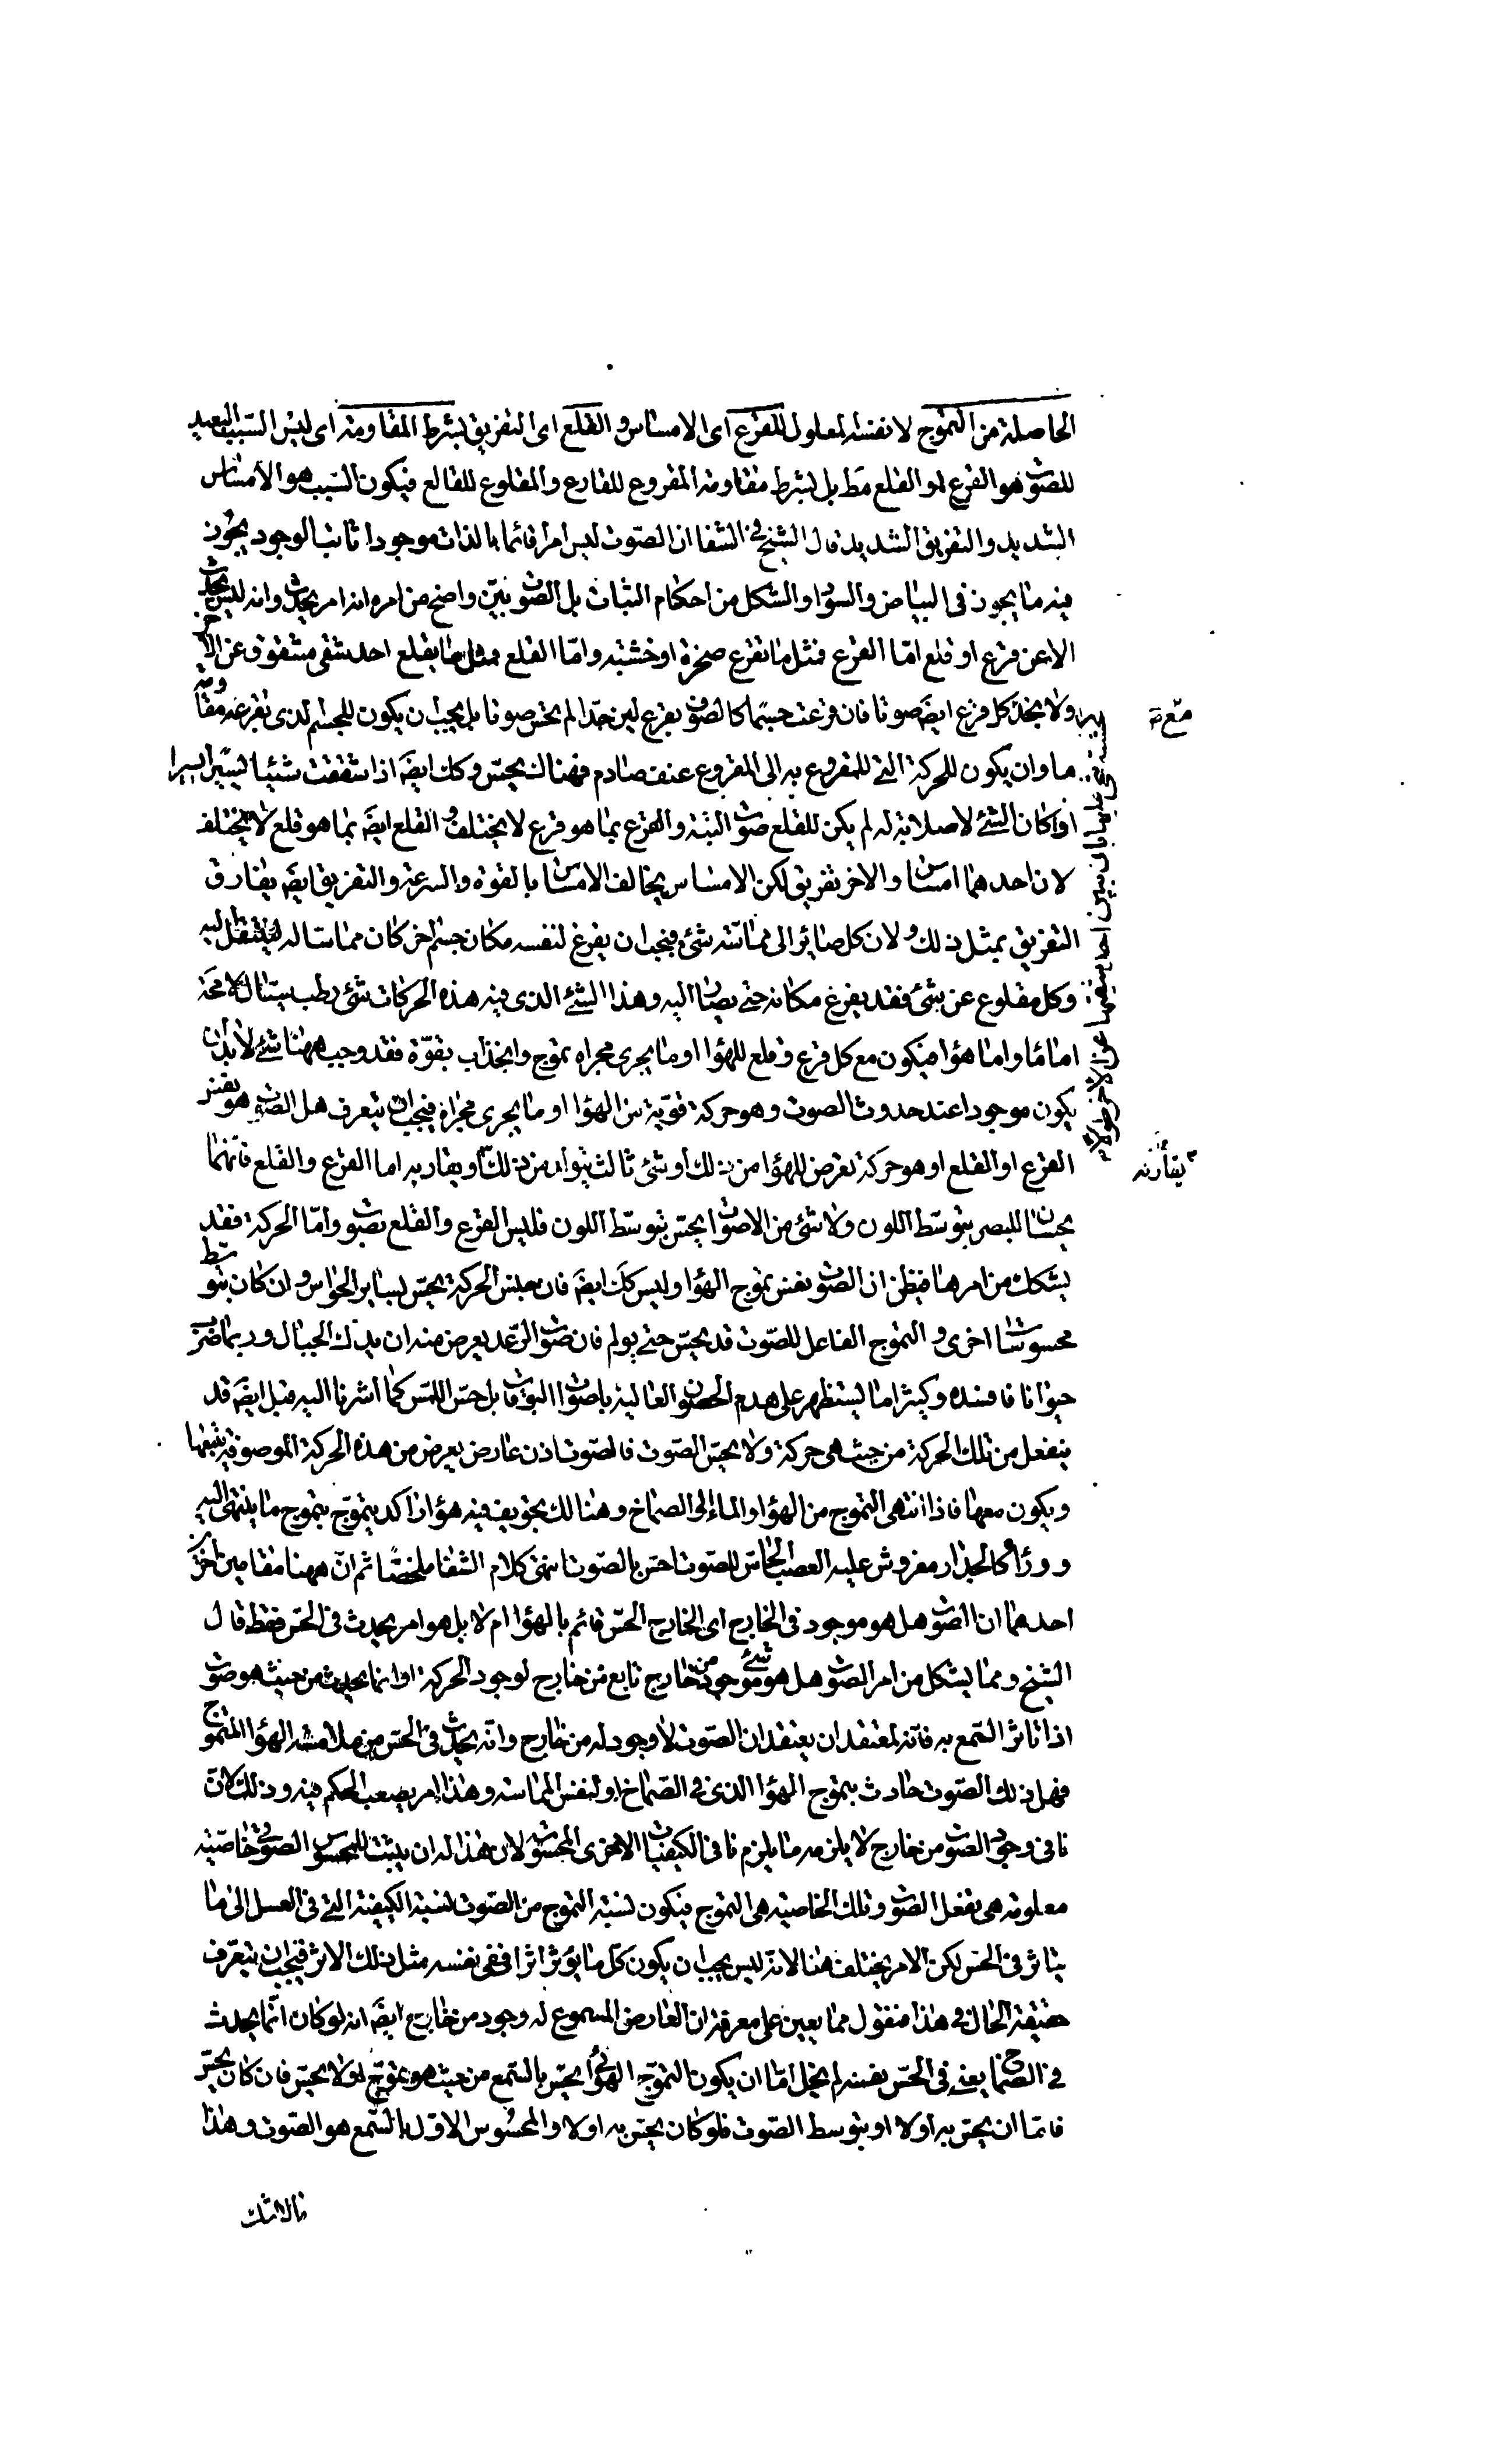 الحاصلة من التموج لا نفسه لمعلول للقرع اى الامساس و القلع اى التفريق بشرط المقاومة اى ليس السبب البعيد
للصوت هو القرع او القلع مط بل بشرط مقاومة المقروع للقارع والمقلوع للقالع فيكون السبب هو الامساس
الشديد والتفريق الشديد قال الشيخ فى الشفا ان الصوت ليس امرا قائما بالذات موجودا ثابت الوجود يجوز
فيه ما يجوز فى البياض والسواد والشكل من احكام الثبات بل الصوت بيّن واضح من امره انه امر يحدث وانه ليس يحدث
الا عن قرع او قلع امّا القرع فمثل ما تقرع صخرة او خشبة وامّا القلع فمثل ما يقلع احد شقى مشقوق عن الاخر
ولا تجد كل قرع ايضَ صوتا فان قرعت جسما كالصوف بقرع لين جدّا لم تحس صوتا بل يجب ان يكون للجسم الذى تقرعه مقاومة
ما وان يكون للحركة التى للمقروع به الى المقروع عنف صادم فهناك يحسّ وكك ايضَ اذا شققت شيئا يسيرا يسيرا
او كان الشئ لا صلابة له لم يكن للقلع صوت البتة والقرع بما هو قرع لا يختلف و القلع ايضَ بما هو قلع لا يختلف
لان احدهما امساس والاخر تفريق لكن الامساس يخالف الامساس بالقوة والسرعة والتفريق ايضَ يفارق
التفريق بمثل ذلك و لان كل صائر الى مماسّة شئ فيجب ان يفرغ لنفسه مكان جسم اخر كان مماسّا له لينتقل اليه
وكل مقلوع عن شئ فقد يفرغ مكانه حتى يصار اليه وهذا الشئ الذى فيه هذه الحركات شئ رطب سيّال لا محة
اما ماء واما هواء فيكون مع كل قرع وقلع للهواء او ما يجرى مجراه تموج وانجذاب بقوّة فقد وجب ههنا شئ لا بد ان
يكون موجودا عند حدوث الصوت وهو حركة قوية من الهواء او ما يجرى مجراه فيجب ان يتعرف هل الصوت هو نفس
القرع او القلع او هو حركة تعرض للهواء من ذلك او شئ ثالث يتولد من ذلك او يقاربه اما القرع والقلع فانهما
يحسّان للبصر بتوسّط اللون ولا شئ من الاصوات يحسّ بتوسّط اللون فليس القرع والقلع بصوت وامّا الحركة فقد
يشكل من امرها فيظن ان الصوت نفس تموج الهواء وليس كك ايضَ فان جنس الحركة يحسّ بساير الحواس و ان كان بتوسّط
محسوسات اخرى و التموج الفاعل للصّوت قد يحسّ حتى يولم فان صوت الرّعد يعرض منه ان يدك الجبال وربما ضرب
حيوانا فافسده وكثيرا ما يستظهر على هدم الحصون العالية باصوات البوقات بل حسّ اللمس كما اشرنا اليه قبل ايضَ قد
ينفعل من تلك الحركة من حيث هى حركة ولا يحسّ الصّوت فالصّوت اذن عارض يعرض من هذه الحركة الموصوفة يتبعها
ويكون معها فاذا انتهى التموج من الهواء والماء الى الصماخ وهنالك تجويف فيه هواء راكد يتموّج بتموج ما ينتهى اليه
ووراؤه كالجدار مفروش عليه العصب الحاسّ للصّوت احس بالصّوت انتهى كلام الشفا ملخصا ثم انّ ههنا مقامين اخرين
احدهما ان الصوت هل هو موجود فى الخارج اى الخارج الحسّ قائم بالهواء ام لا بل هو امر يحدث فى الحسّ فقط قال
الشيخ ومما يشكل من امر الصوت هل هو شئ موجود من خارج تابع من خارج لوجود الحركة او انما يحدث من حيث هو صوت
اذا تاثر السّمع به فانّه لمعتقد ان يعتقد ان الصّوت لا وجود له من خارج وانّه يحدث فى الحسّ من ملامسة الهواء المتموج
فهل ذلك الصّوت حادث بتموج الهواء الذى فى الصّماخ او لنفس المماسة وهذا امر يصعب الحكم فيه وذلك لانّ
نافى وجود الصوت من خارج لا يلزمه ما يلزم نافى الكيفيات الاخرى المحسوسة لان هذا له ان يثبت للمحسوس الصّوتى خاصّية
معلومة هى تفعل الصّوت وتلك الخاصية هى التموج فيكون نسبة التموج من الصّوت نسبة الكيفية التى فى العسل الى ما
يتاثر فى الحس لكن الامر يختلف هنا لانه ليس يجب ان يكون كلّ ما يؤثر اثرا ففى نفسه مثل ذلك الاثر فيجب ان يتعرّف
حقيقة الحال فى هذا فنقول مما يعين على معرفة ان العارض المسموع له وجود من خارج ايضَ انه لو كان انّما يحدث
فى الصّماخ يعنى فى الحسّ نفسه لم يخل امّا ان يكون التموّج الهوائى يحسّ بالسّمع من حيث هو تموّج او لا يحسّ فان كان يحسّ
فامّا ان يحسّ به اولا او بتوسط الصّوت فلو كان يحسّ به اولا والمحسُوس الاوّل بالسّمع هو الصّوت وهذا
مما لا شك